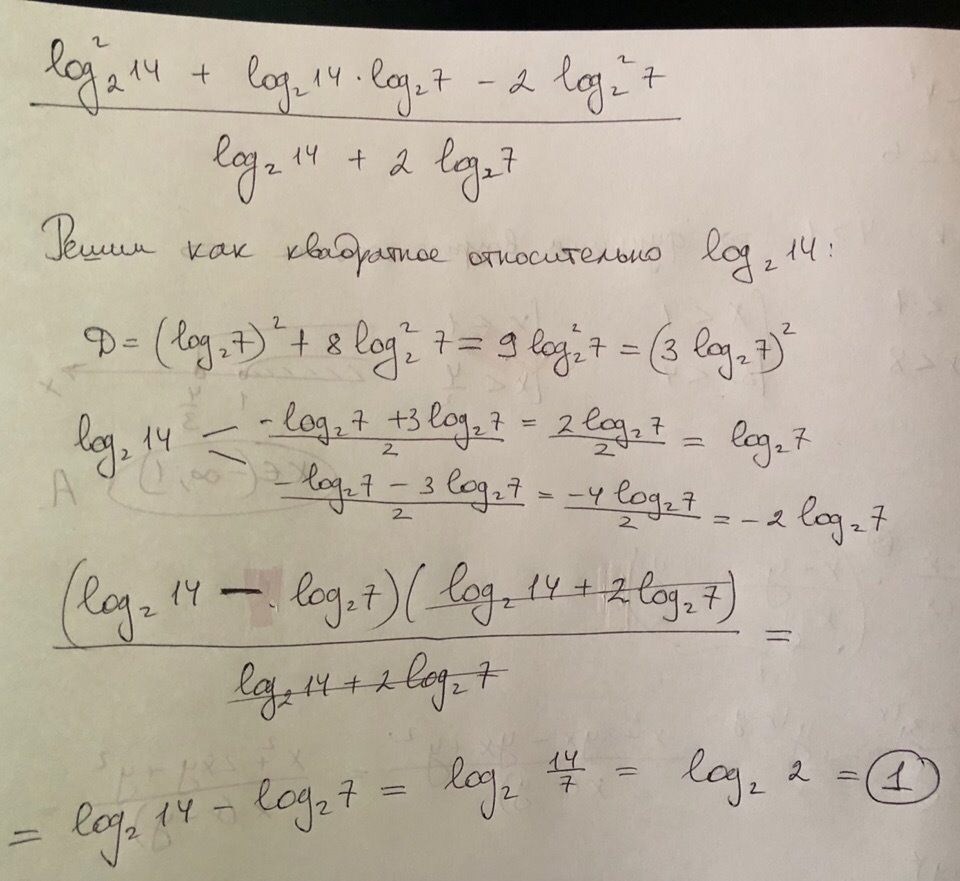 log₂² 14 + log₂ 14 · log₂ 7 − 2 log₂² 7
log₂ 14 + 2 log₂ 7
Решим как квадратное относительно log₂ 14:
D = (log₂ 7)² + 8 log₂² 7 = 9 log₂² 7 = (3 log₂ 7)²
log₂ 14
−log₂ 7 + 3 log₂ 7 / 2 = 2 log₂ 7 / 2 = log₂ 7
−log₂ 7 − 3 log₂ 7 / 2 = −4 log₂ 7 / 2 = −2 log₂ 7
(log₂ 14 − log₂ 7)(log₂ 14 + 2 log₂ 7) =
log₂ 14 + 2 log₂ 7
= log₂ 14 − log₂ 7 = log₂ 14/7 = log₂ 2 = 1